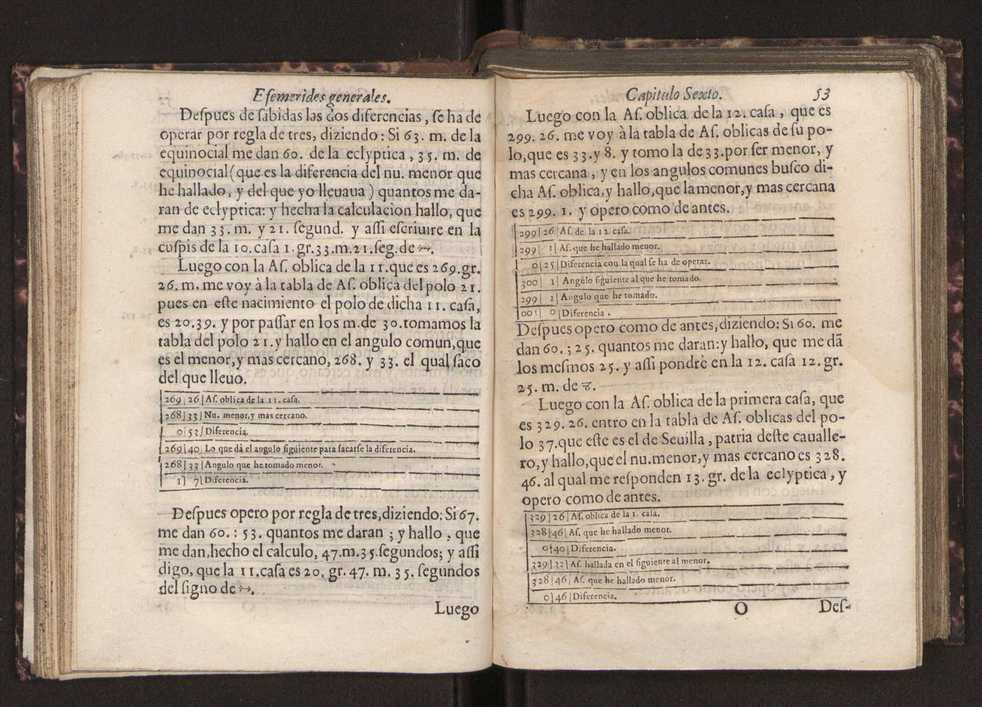 Efemerides generales.
Despues de sabidas las dos diferencias, se ha de
operar por regla de tres, diziendo: Si 63. m. de la
equinocial me dan 60. de la eclyptica, 35. m. de
equinocial (que es la diferencia del nu. menor que
he hallado, y del que yo lleuaua) quantos me da-
ran de eclyptica: y hecha la calculacion hallo, que
me dan 33. m. y 21. segund. y assi escriuire en la
cuspis de la 10. casa 1. gr. 33. m. 21. seg. de ♐.
Luego con la As. oblica de la 11. que es 269. gr.
26. m. me voy à la tabla de As. oblica del polo 21.
pues en este nacimiento el polo de dicha 11. casa,
es 20. 39. y por passar en los m. de 30. tomamos la
tabla del polo 21. y hallo en el angulo comun, que
es el menor, y mas cercano, 268. y 33. el qual saco
del que lleuo.
269|26|As. oblica de la 11. casa.
268|33|Nu. menor, y mas cercano.
0|53|Diferencia.
269|40|Lo que dà el angulo siguiente para sacarse la diferencia.
268|33|Angulo que he tomado menor.
1|7|Diferencia.
Despues opero por regla de tres, diziendo: Si 67.
me dan 60. : 53. quantos me daran; y hallo, que
me dan, hecho el calculo, 47. m. 35. segundos; y assi
digo, que la 11. casa es 20, gr. 47. m. 35. segundos
del signo de ♐.
Luego
Capitulo Sexto. 53
Luego con la As. oblica de la 12. casa, que es
299. 26. me voy à la tabla de As. oblicas de su po-
lo, que es 33. y 8. y tomo la de 33. por ser menor, y
mas cercana, y en los angulos comunes busco di-
cha As. oblica, y hallo, que la menor, y mas cercana
es 299. 1. y opero como de antes.
299|26|As. de la 12. casa.
299|1|As. que he hallado menor.
0|25|Diferencia con la qual se ha de operar.
300|1|Angulo siguiente al que he tomado.
299|1|Angulo que he tomado.
001|0|Diferencia.
Despues opero como de antes, diziendo: Si 60. me
dan 60. ; 25. quantos me daran: y hallo, que me dã
los mesmos 25. y assi pondrè en la 12. casa 12. gr.
25. m. de ♑.
Luego con la As. oblica de la primera casa, que
es 329. 26. entro en la tabla de As. oblicas del po-
lo 37. que este es el de Seuilla, patria deste caualle-
ro, y hallo, que el nu. menor, y mas cercano es 328.
46. al qual me responden 13. gr. de la eclyptica, y
opero como de antes.
329|26|As. oblica de la 1. casa.
328|46|As. que he hallado menor.
0|40|Diferencia.
329|32|As. hallada en el siguiente al menor.
328|46|As. que he hallado menor.
0|46|Diferencia.
O Des-